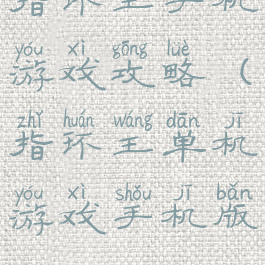 指环王手机
yóu xì gōng lüè
游戏攻略（
zhǐ huán wáng dān jī
指环王单机
yóu xì shǒu jī bǎn
游戏手机版